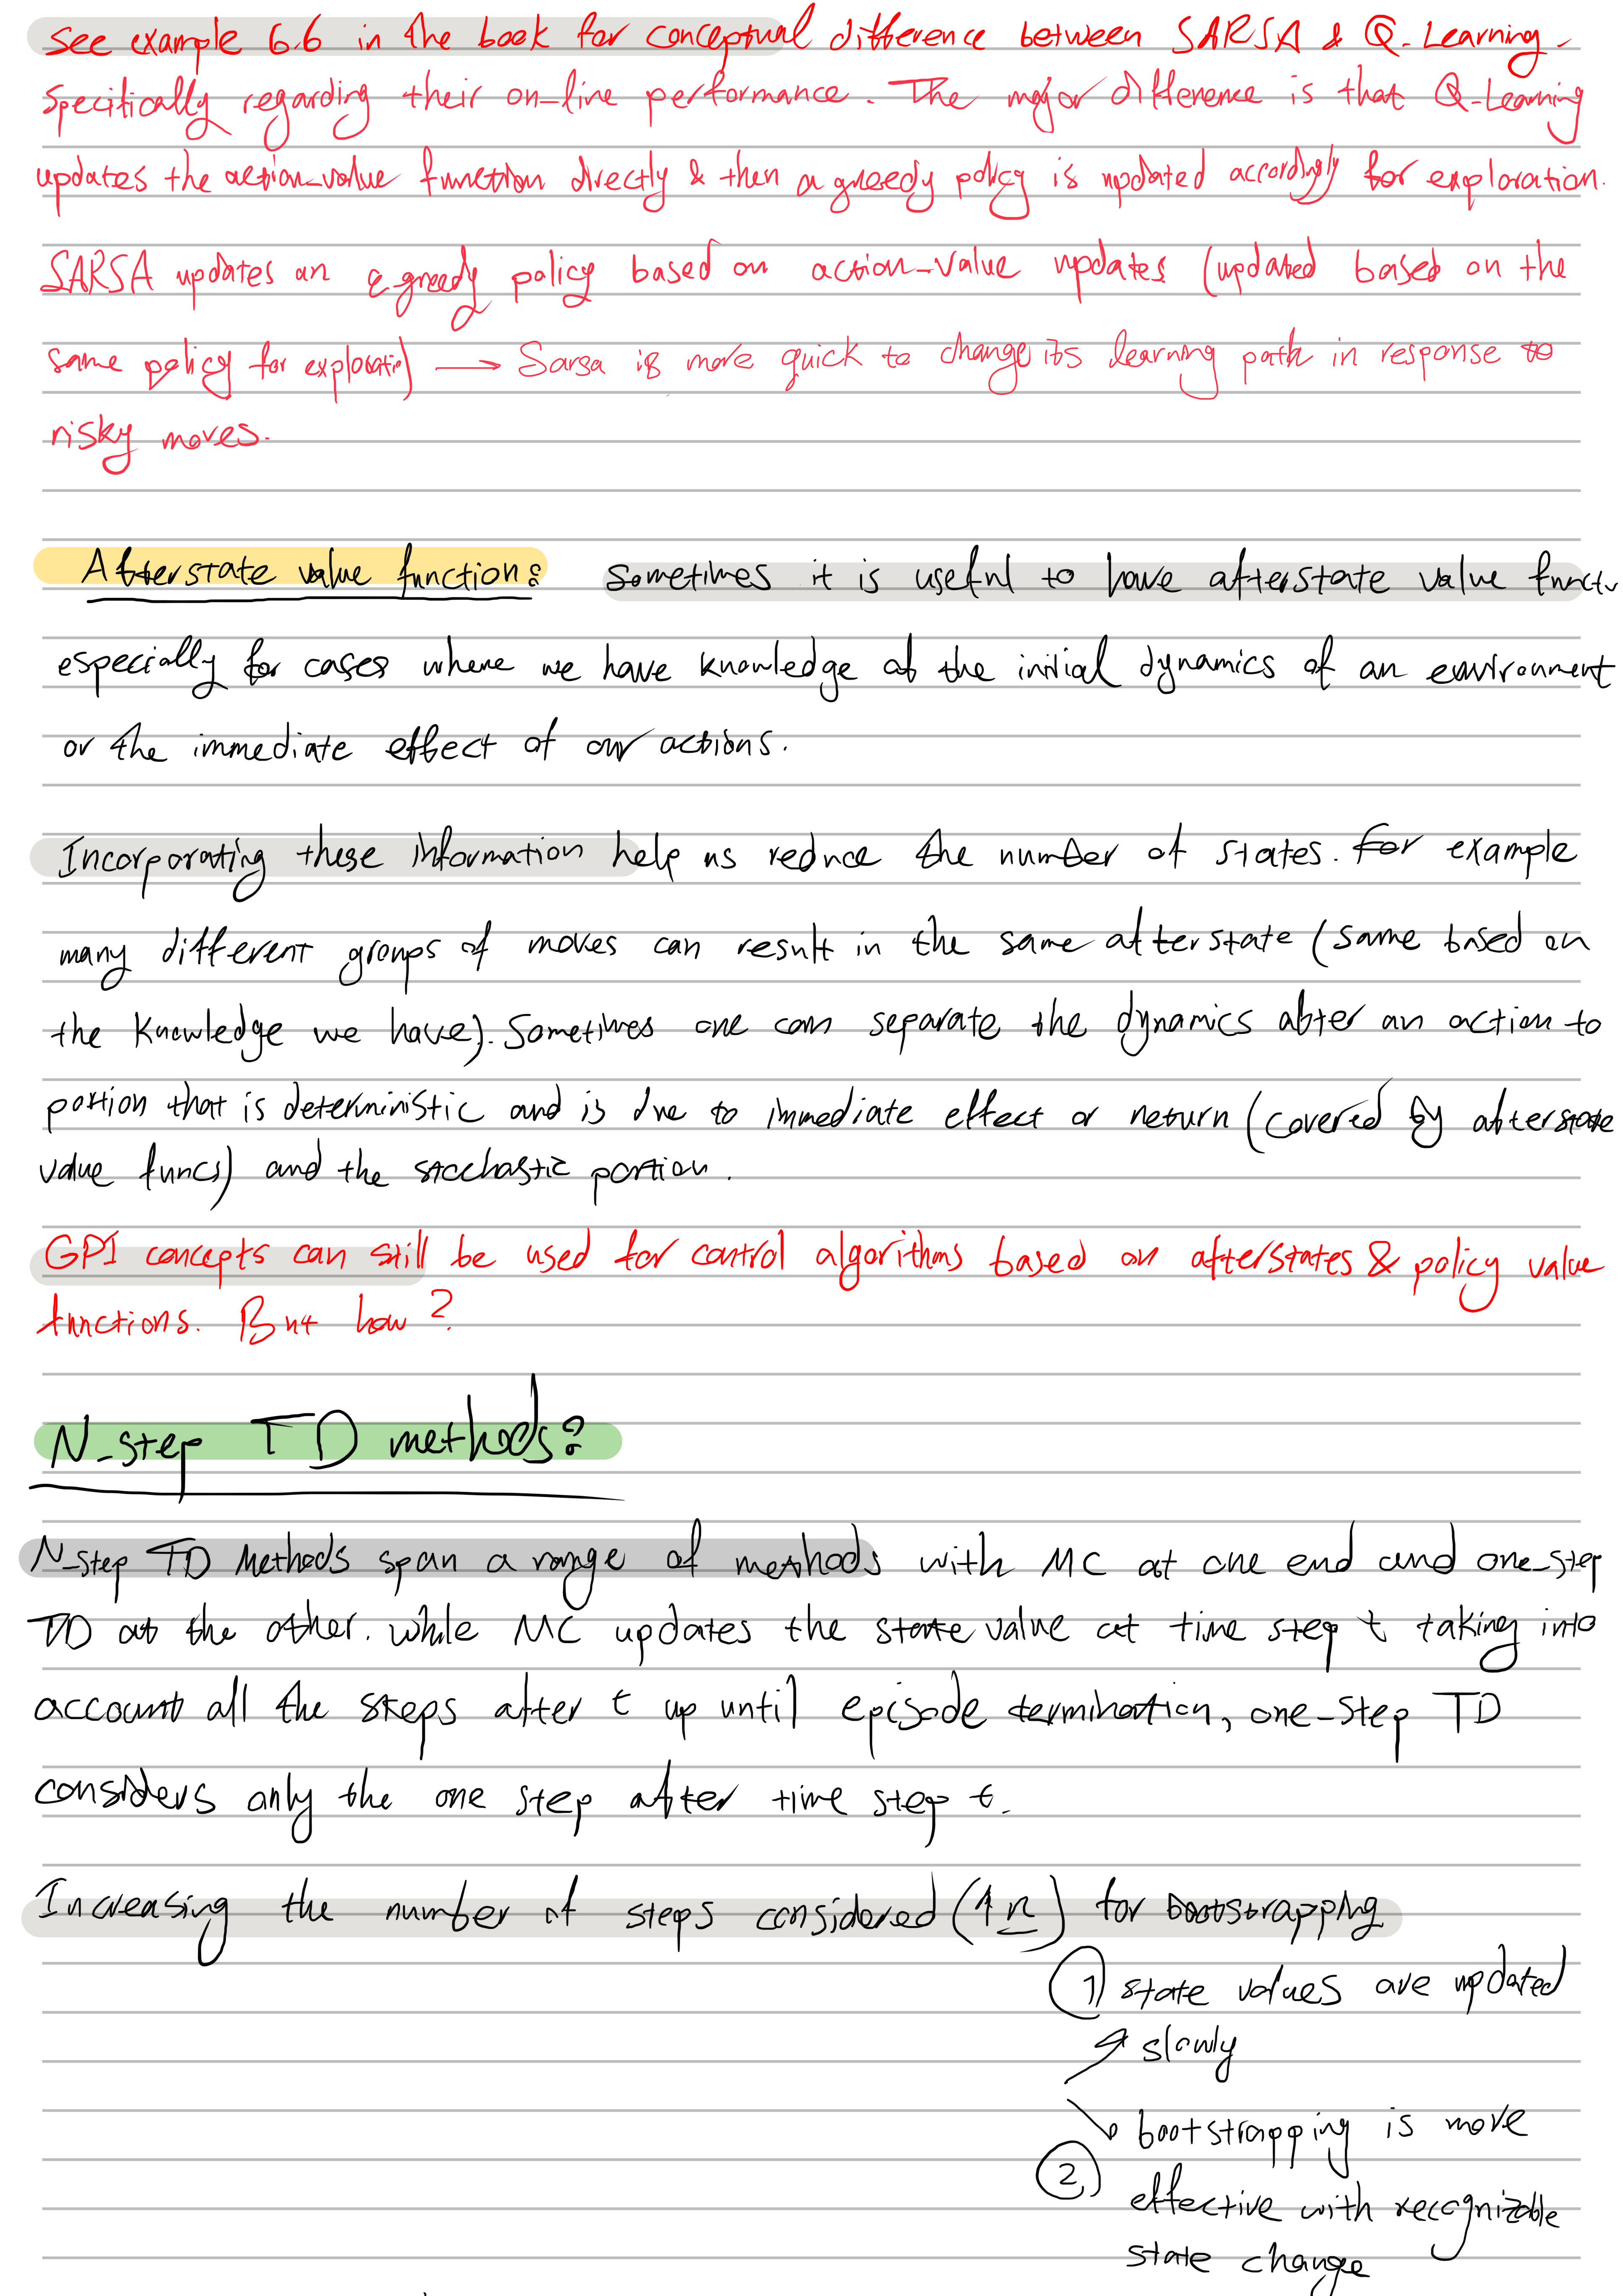 See example 6.6 in the book for conceptual difference between SARSA & Q-Learning-
specifically regarding their on-line performance. The major difference is that Q-Learning
updates the action-value function directly & then a greedy policy is updated accordingly for exploration.
SARSA updates an ε-greedy policy based on action-value updates (updated based on the
same policy for exploratio) → Sarsa is more quick to change its learning path in response to
risky moves.
Afterstate value function: Sometimes it is useful to have afterstate value functi
especially for cases where we have knowledge of the initial dynamics of an environment
or the immediate effect of our actions.
Incorporating these information help us reduce the number of states. For example
many different groups of moves can result in the same afterstate (same based on
the knowledge we have). Sometimes one can separate the dynamics after an action to
portion that is deterministic and is due to immediate effect or return (covered by afterstate
value funcs) and the stochastic portion.
GPI concepts can still be used for control algorithms based on afterstates & policy value
functions. But how?
N-step TD methods:
N-step TD Methods span a range of methods with MC at one end and one-step
TD at the other. while MC updates the state value at time step t taking into
account all the steps after t up until episode termination, one-step TD
considers only the one step after time step t.
Increasing the number of steps considered (↑n) for bootstrapping
① state values are updated
↗ slowly
↘ bootstrapping is more
② effective with recognizable
state change